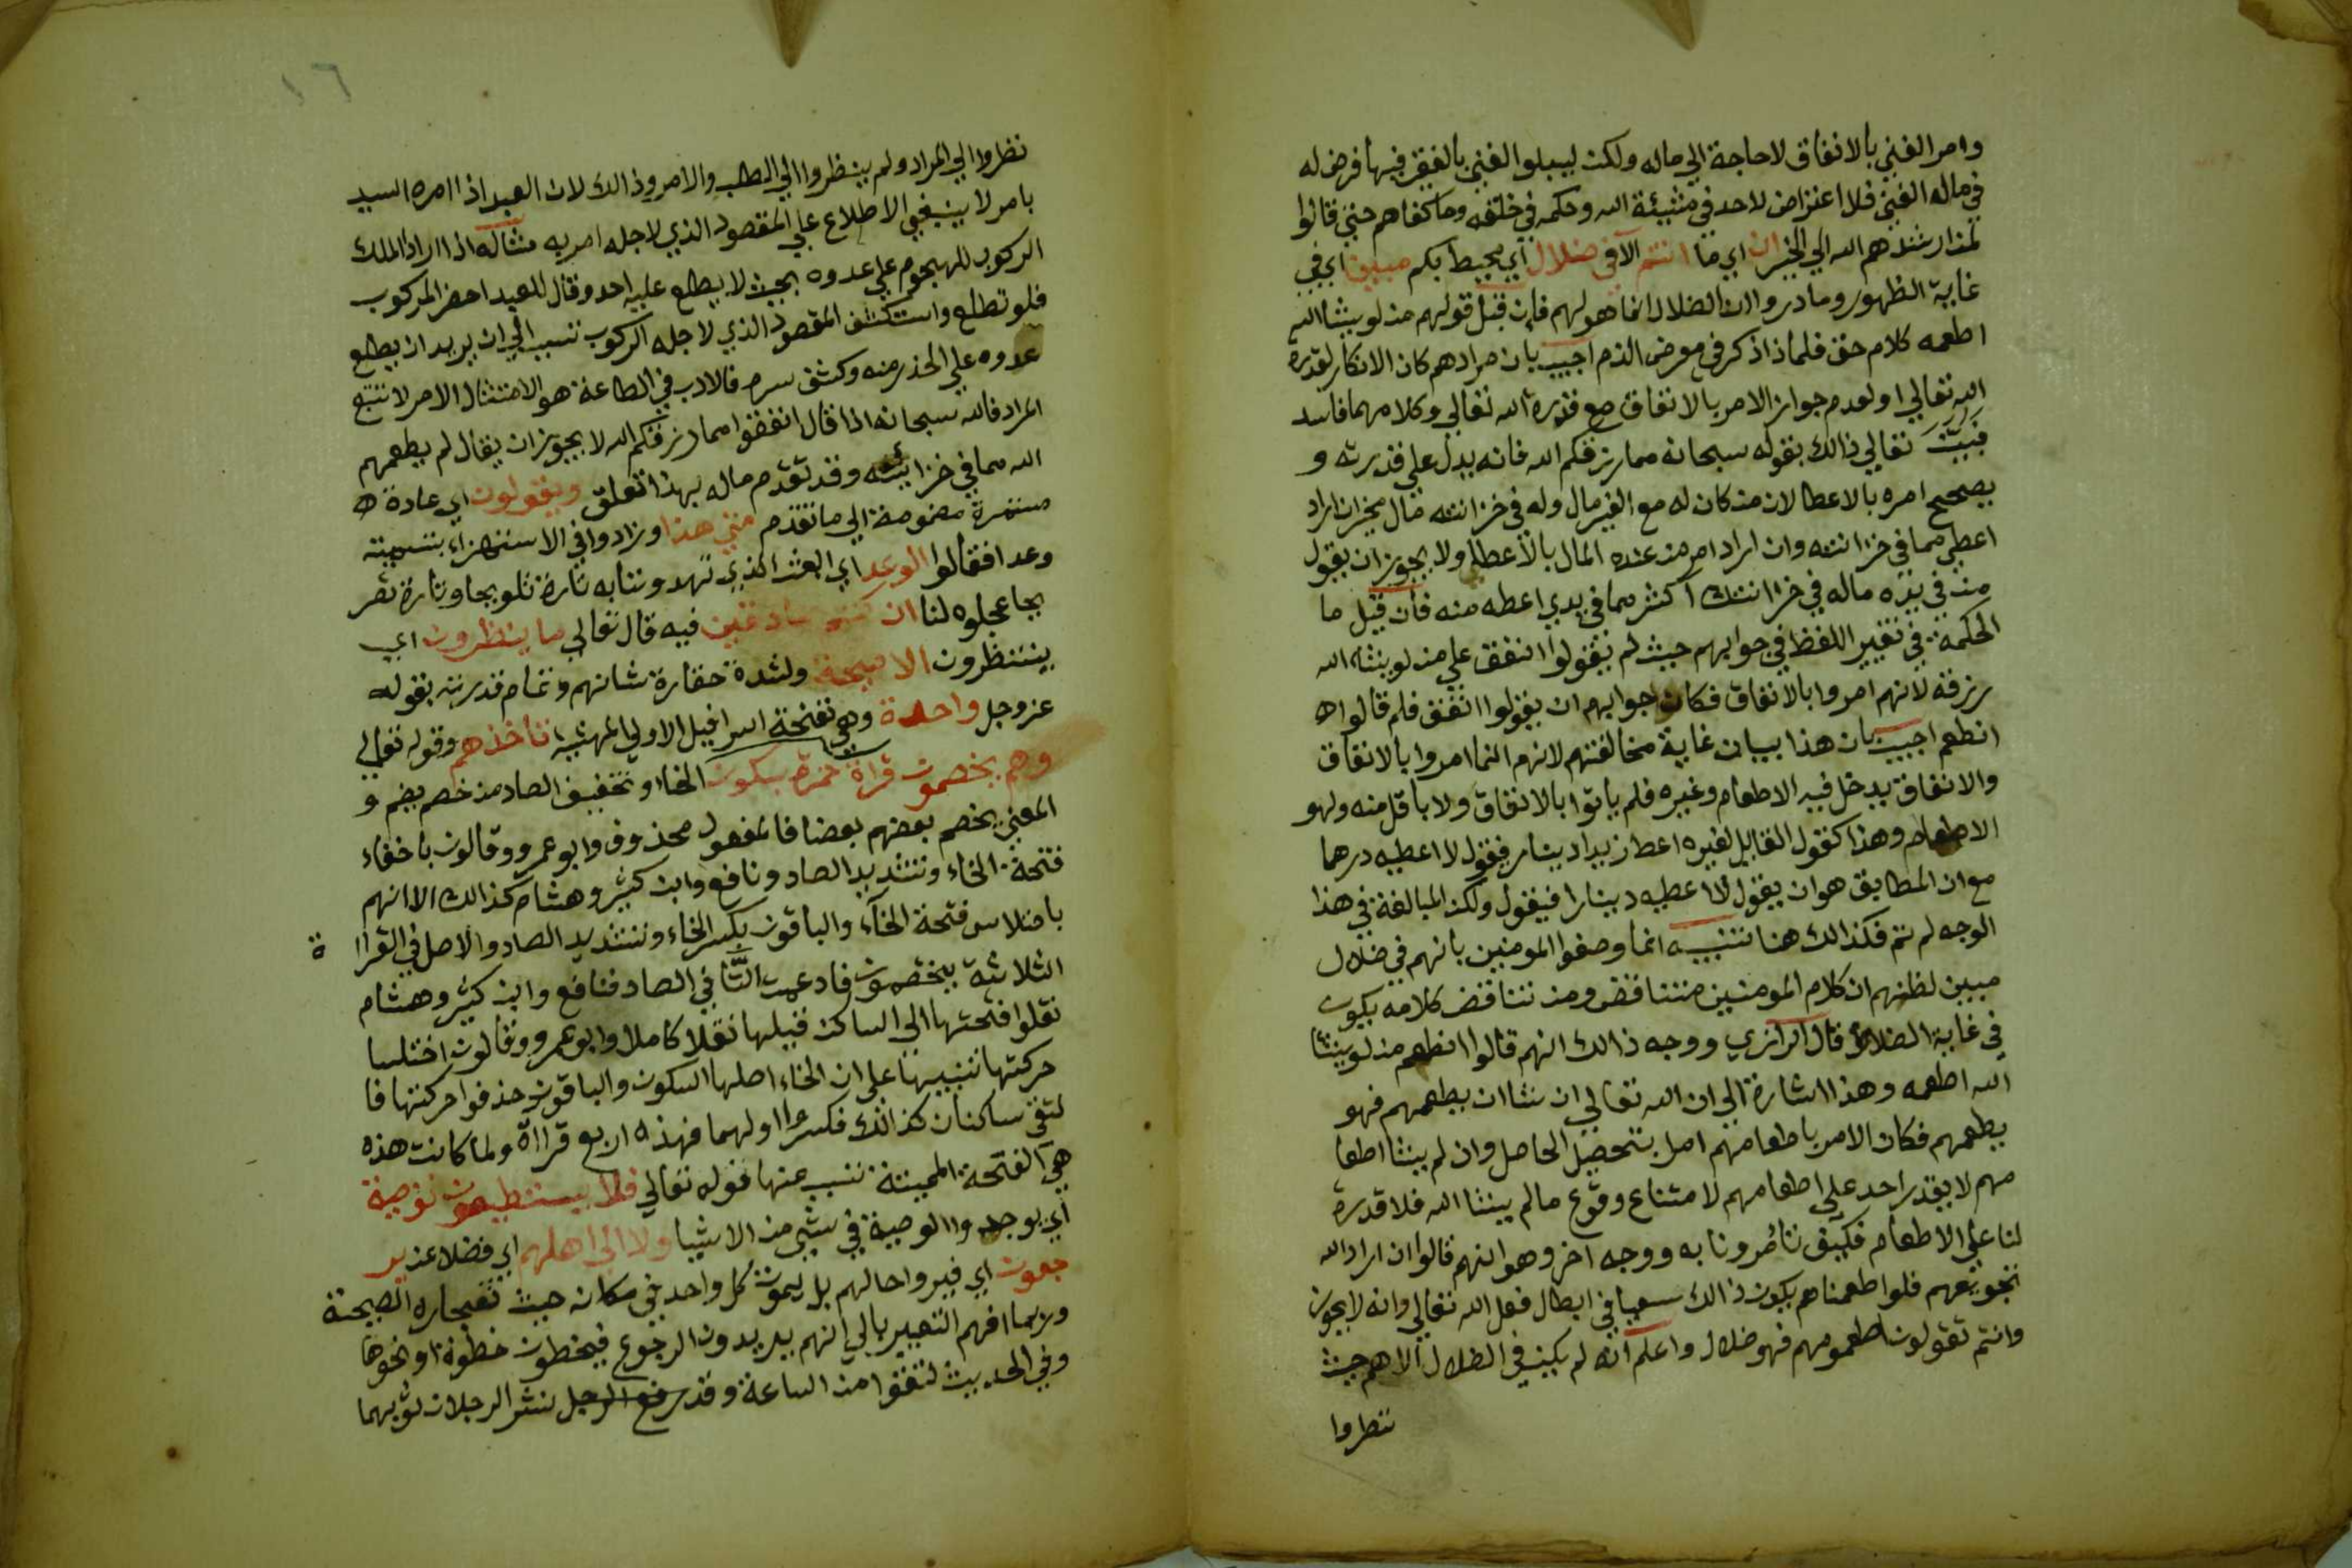 وامر الغني بالانفاق لاحاجة الي ماله ولكن ليبلوا الغني بالفقير فيها فرض له
في مال الغني فلا اعتراض لاحد في مشيئة الله وحكمه في خلقه وما كفاهم حتي قالوا
لمن ارشدهم الله الي الخير ان اي ما انتم الا في ضلال اي محيط بكم مبين اي في
غاية الظهور وما دروا ان الضلال انما هو لهم فان قيل قولهم من لو يشا الله
اطعمه كلام حق فلماذا ذكر في معرض الذم اجيب بان مرادهم كان الانكار لقدرة
الله تعالي او لعدم جواز الامر بالانفاق مع قدرة الله تعالي وكلامهما فاسد
فبين تعالي ذالك بقوله سبحانه مما رزقكم الله فانه يدل علي قدرته و
يصحح امره بالاعطا لان من كان له مع الغير مال وله في خزانته مال مخير ان اراد
اعطي مما في خزانته وان اراد امر من عنده المال بالاعطا ولا يجوز ان يقول
من في يده ماله في خزانتك اكثر مما في يدي اعطه منه فان قيل ما
الحكمة في تغيير اللفظ في جوابهم حيث لم يقولوا اننفق علي من لو يشاء الله
رزقه لانهم امروا بالانفاق فكان جوابهم ان يقولوا اننفق فلم قالوا ه
انطعم اجيب بان هذا بيان غاية مخالفتهم لانهم انما امروا بالانفاق
والانفاق يدخل فيه الاطعام وغيره فلم ياتوا بالانفاق ولا باقل منه وهو
الاطعام وهذا كقول القايل لغيره اعط زيدا دينار فيقول لا اعطيه درهما
مع ان المطابق هو ان يقول لا اعطيه دينارا فيقول ولكن المبالغة في هذا
الوجه لم تتم فكذالك هنا تنبيه انما وصفوا المومنين بانهم في ضلال
مبين لظنهم ان كلام المومنين متناقض ومن تناقض كلامه يكون
في غاية الضلال قال الرازي ووجه ذالك انهم قالوا انطعم من لو يشا
الله اطعمه وهذا اشارة الي ان الله تعالي ان شا ان يطعمهم فهو
يطعمهم فكان الامر باطعامهم امل بتحصيل الحاصل وان لم يشا اطعا
مهم لا يقدر احد علي اطعامهم لامتناع وقوع مالم يشا الله فلا قدرة
لنا علي الاطعام فكيف تامرونا به ووجه اخر وهو انهم قالوا ان اراد الله
تجويعهم فلو اطعمناهم يكون ذالك سعيا في ابطال فعل الله تعالي وانه لا يجوز
وانتم تقولون اطعموهم فهو ضلال واعلم انه لم يكن في الضلال الا هم حيث
نظروا
نظروا الي المراد ولم ينظروا الي الطلب والامر وذالك لان العبد اذا امره السيد
بامر لا ينبغي الاطلاع علي المقصود الذي لاجله امر به مثاله اذا اراد الملك
الركوب للهجوم علي عدوه بحيث لا يطلع عليه احد وقال للعبد احضر المركوب
فلو تطلع واستكشف المقصود الذي لاجله الركوب نسب الي ان يريد ان يطلع
عدوه علي الحذر منه وكشف سره فالادب في الطاعة هو الامتثال الامر لا تتبع
المراد فالله سبحانه اذا قال انفقوا مما رزقكم الله لا يجوز ان يقال لم يطعمهم
الله مما في خزائنه وقد تقدم ماله بهذا تعلق ويقولون اي عادة ه
مستمرة مضمومة الي ما تقدم متي هذا وزادوا في الاستهزاء بتسميته
وعدا فقالوا الوعد اي البعث الذي تهددوننا به تارة تلويحا وتارة تصر
يحا عجلوه لنا ان كنتم صادقين فيه قال تعالي ما ينظرون اي
ينتظرون الا صيحة ولشدة حقارة شانهم وتمام قدرته بقوله
عز وجل واحدة وهي نفخة اسرافيل الاولي المميتة تاخذهم وقوله تعالي
وهم يخصمون قراة حمزة بسكون الخاء وتخفيف الصاد من خصم يخصم و
المعني يخصم بعضهم بعضا فالمفعول محذوف وابو عمرو وقالون باخفاء
فتحة الخاء وتشديد الصاد ونافع وابن كثير وهشام كذالك الا انهم
باختلاس فتحة الخاء والباقون بكسر الخاء وتشديد الصاد والاصل في القراا ة
الثلاثة يختصمون فادغمت التا في الصاد فنافع وابن كثير وهشام
نقلوا فتحتها الي الساكن قبلها نقلا كاملا وابو عمرو وقالون اختلسا
حركتها تنبيها علي ان الخاء اصلها السكون والباقون حذفوا حركتها فا
لتقي ساكنان كذالك فكسروا اولهما فهذه اربع قرااة ولما كانت هذه
هي النفخة المميتة تسبب عنها قوله تعالي فلا يستطيعون توصية
اي يوجدوا الوصية في شي من الاشيا ولا الي اهلهم اي فضلا عن ير
جعون اي فيروا حالهم بل يموت كل واحد في مكانه حيث تفجاره الصيحة
وربما افهم التعبير بالي انهم يريدون الرجوع فيخطون خطوة او نحوها
وفي الحديث لتقوا من الساعة وقد رفع الرجل نشر الرجلان ثوبهما